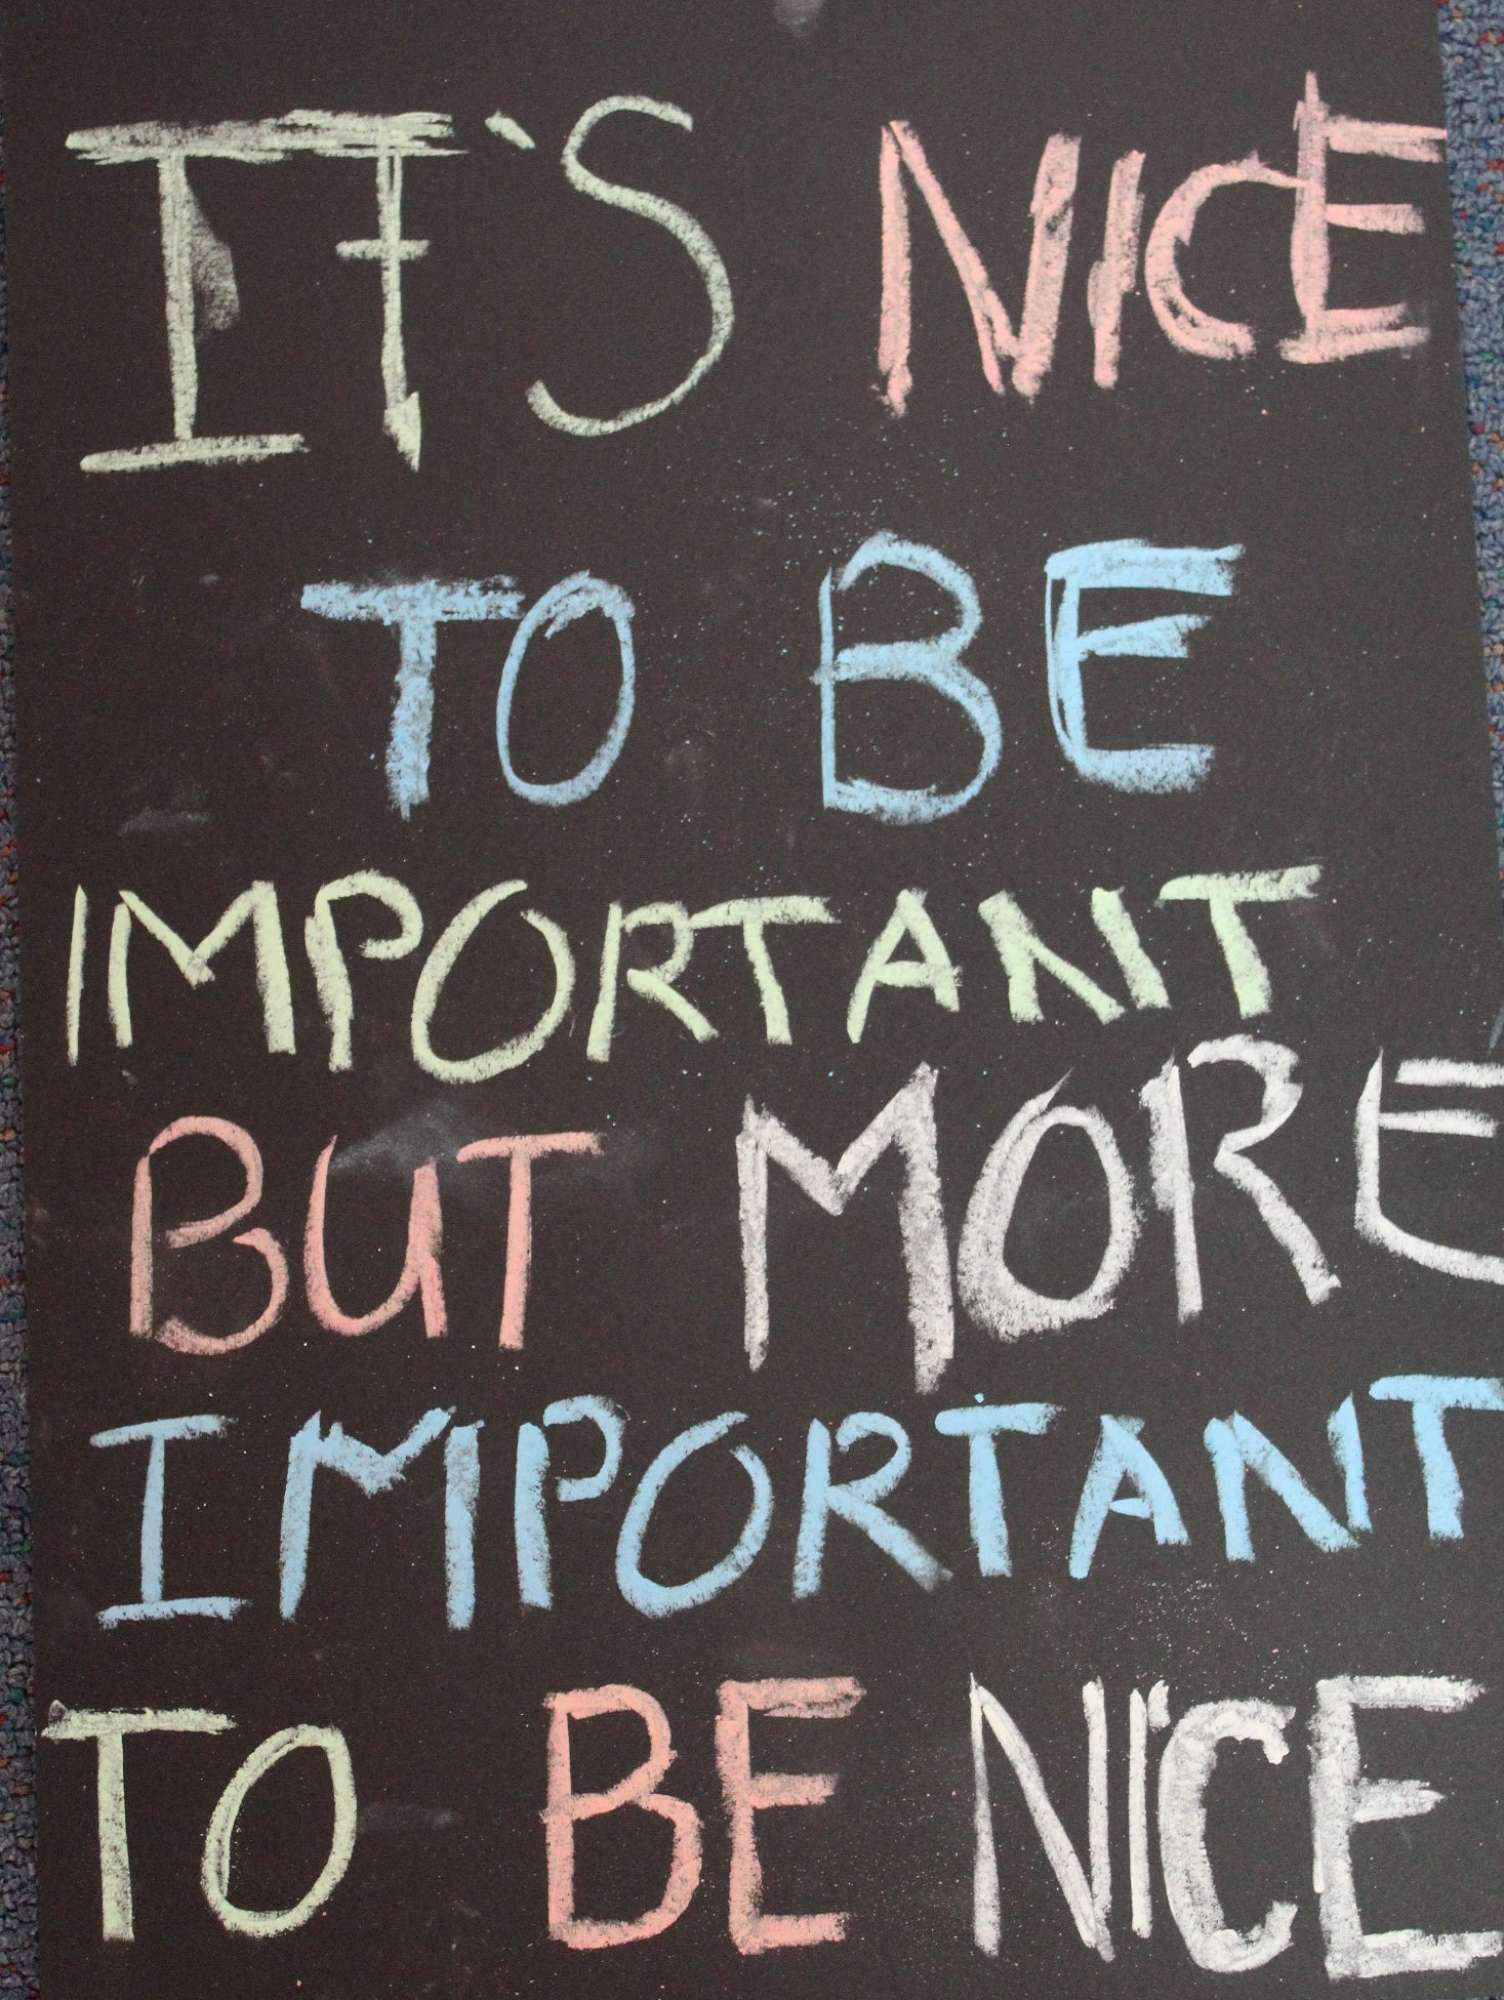 IT'S NICE
TO BE
IMPORTANT
BUT MORE
IMPORTANT
TO BE NICE